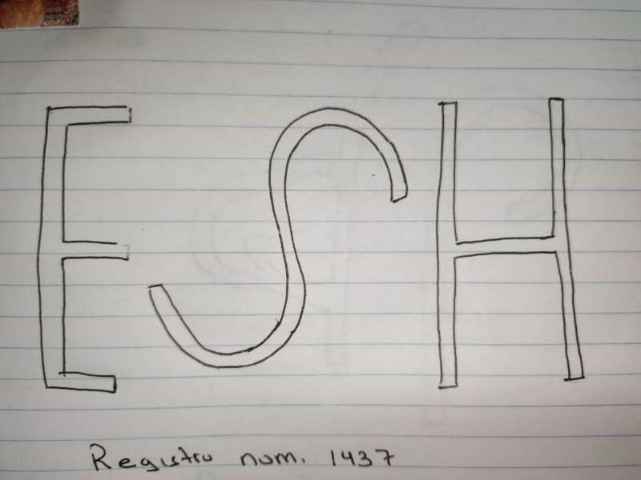 ESH
Registro num. 1437